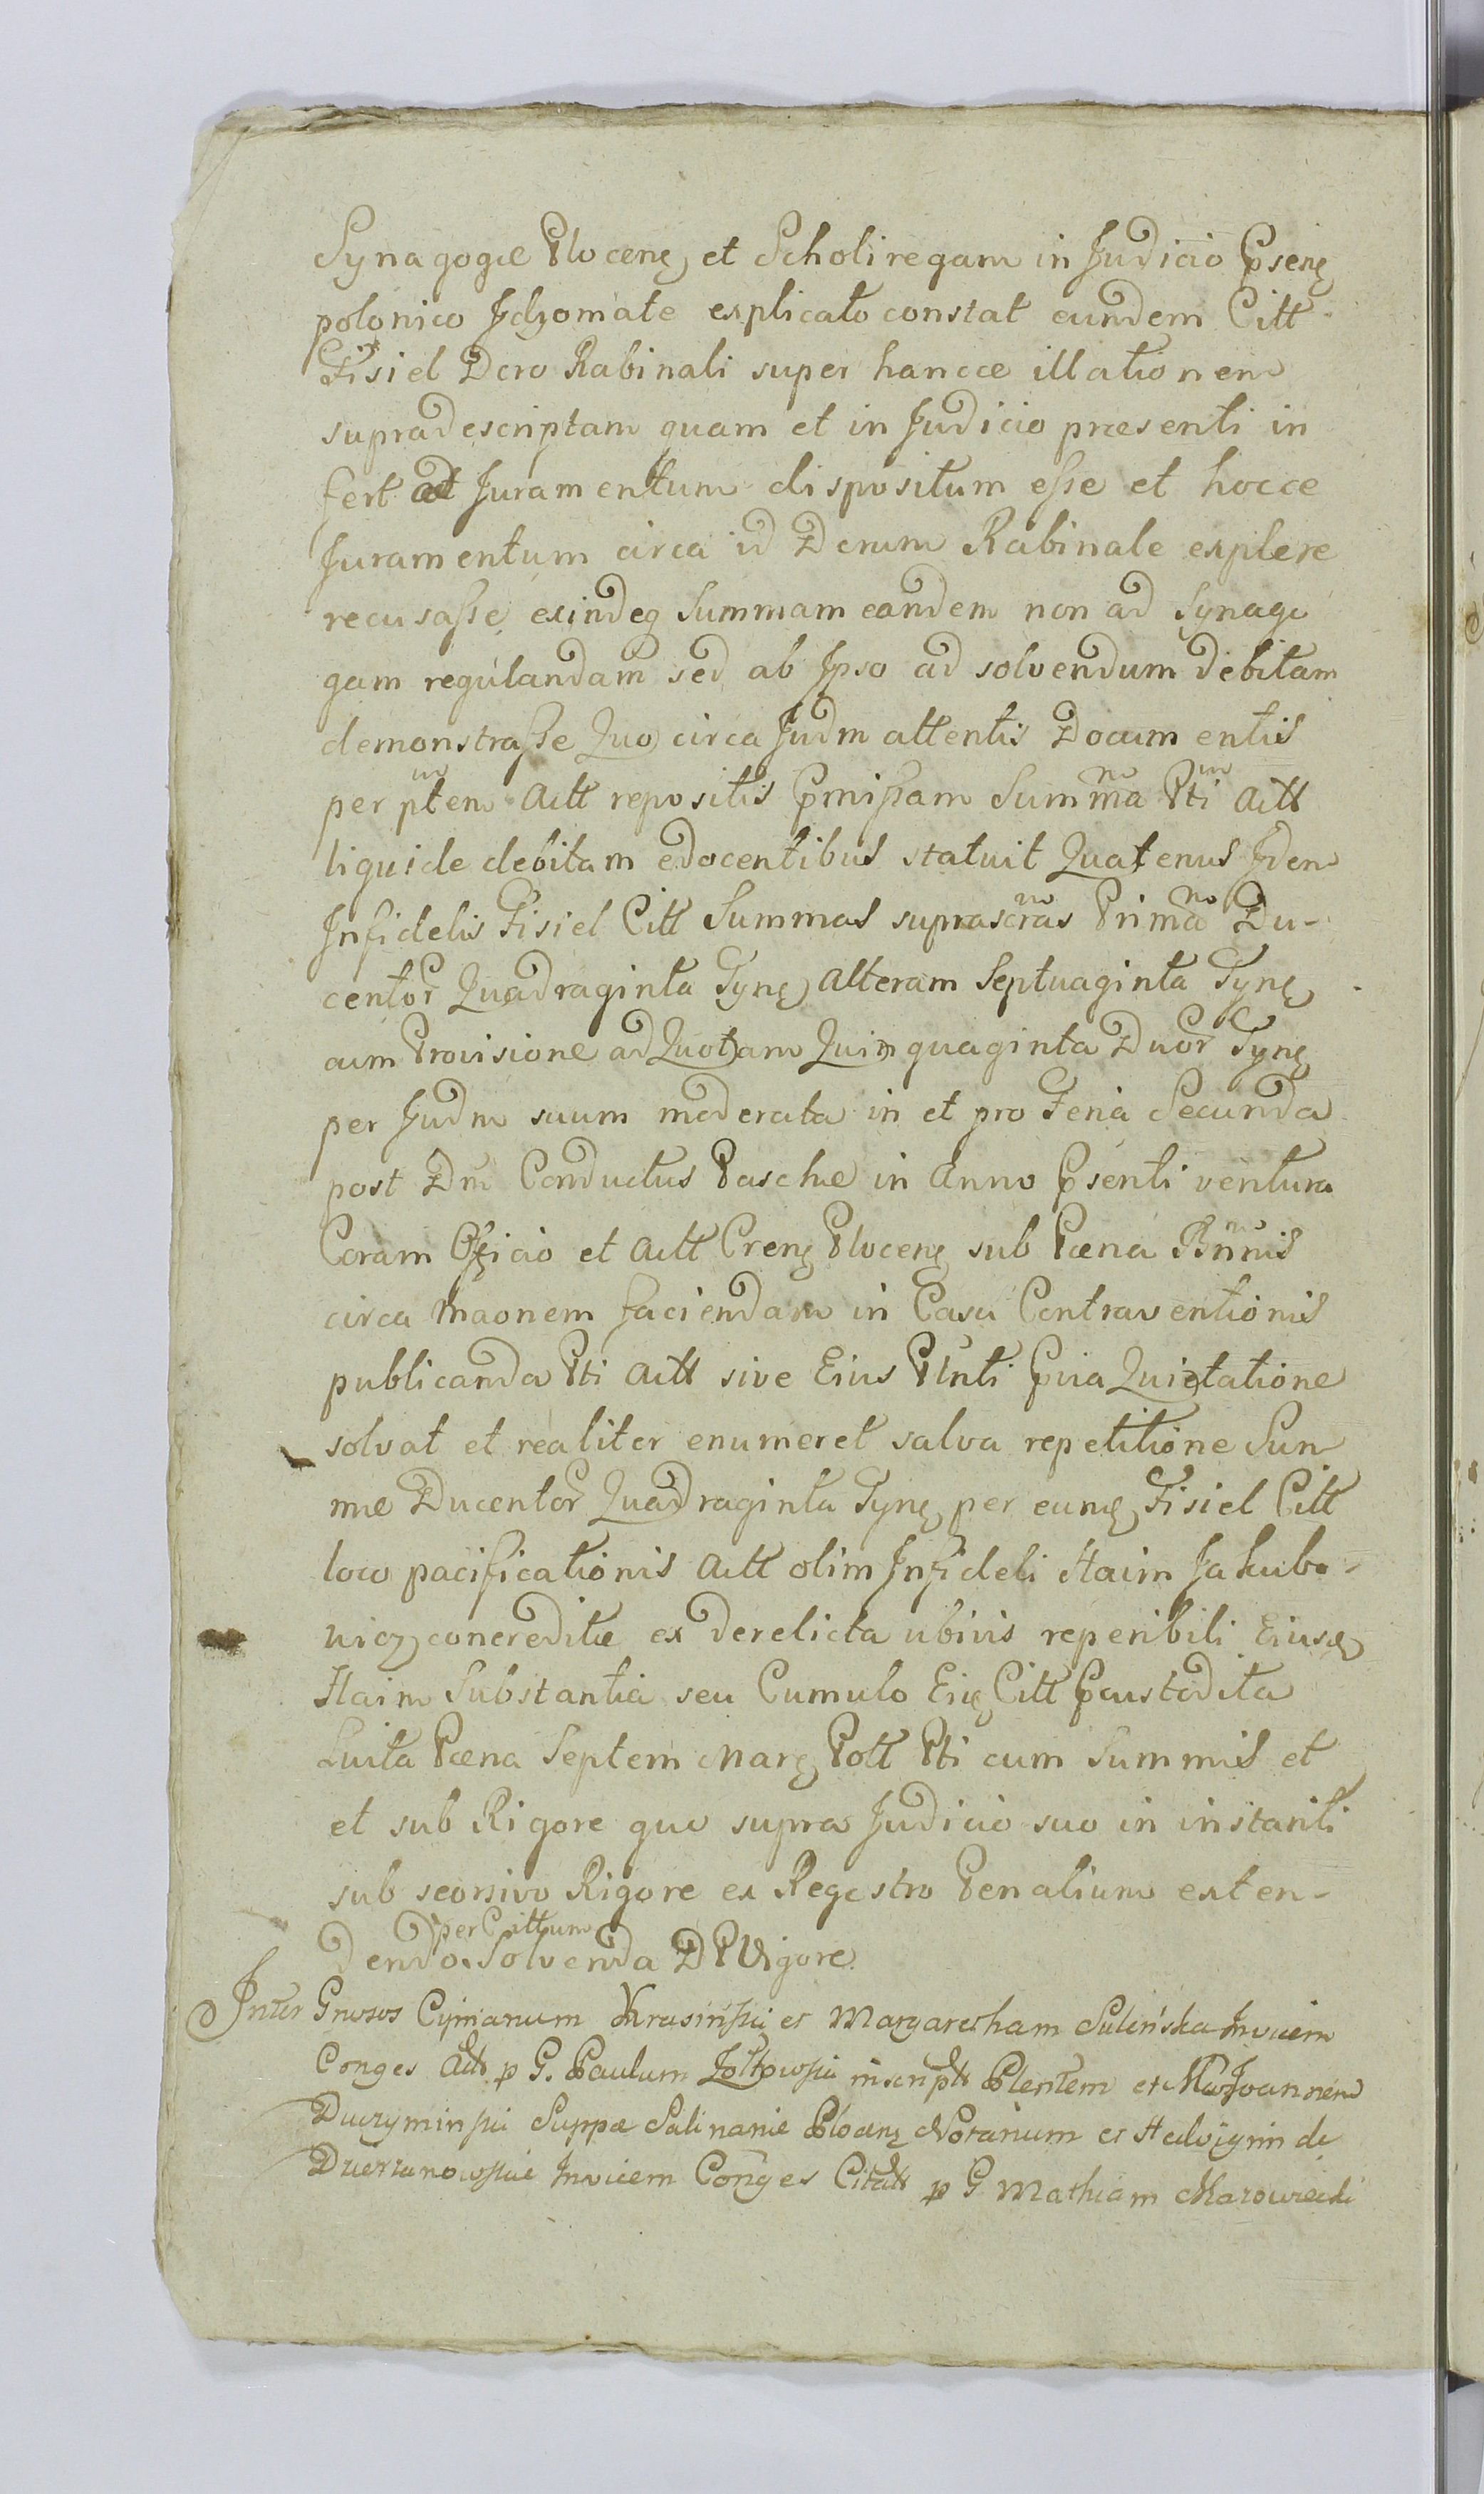 Synagogæ Plocenę et Scholiregam in Judicio Psenę
polonico Idzomate explicato constat eundem Citt
Fisiel Dcro Rabinali super hancce illationem
supradescriptam quam et in Judicio præsenti in
fert ad Juramentum dispositum esse et hocce
Juramentum circa id Dcrum Rabinale explere
recusasse exindeq Summam eandem non ad Synago
gam regulandam sed ab Ipso ad solvendum debitam
demonstrasse Quo circa Judm attentis Documentis
per ptem Actt repositis Pmissam Summa Pti Actt
liquide debitam edocentibus statuit Quatenus Idem
Infidelis Fisiel Citt Summas suprascras Prima Du-
centor Quadraginta Tynę alteram Septuaginta Tynę
cum Provisione ad Quotam Quinquaginta Duor Tynę
per Judm suum moderata in et pro Feria Secunda
post Dm Conductus Paschæ in Anno Psenti ventura
Coram Officio et Actt Crenę Plocenę sub Pæna Bnnis
circa Maonem faciendam in Casu Contraventionis
publicanda Pti Actt sive Eius Plnti Pvia Quietatione
solvat et realiter enumeret salva repetitione Sum
mæ Ducentor Quadraginta Tynę per eumę Fisiel Citt
loco pacificationis Actt olim Infideli Haim Jakubo-
wicz concreditæ ex derelicta ubivis reperibili Eiusdę
Haim Substantia seu Cumulo Eię Citt Pcustodita
Luita Pæna Septem Marę Poll Pti cum Summis et
et sub Rigore quo supra Judicio suo in instanti
sub seorsivo Rigore ex Regestro Penalium exten-
dendo per Cittum Solvenda D P Vigore
Inter Gnosos Cyprianum Krasinski et Margaretham Sulińska Invicem
Conges Actt p G. Paulum Zółtowski inscript Plentem et Joannem
Duczyminski Suppæ Salinariæ Plocenę Notarium et Hedvigim de
Dzierzanowskie Invicem Conges Citatt p G Mathiam Mazowiecki